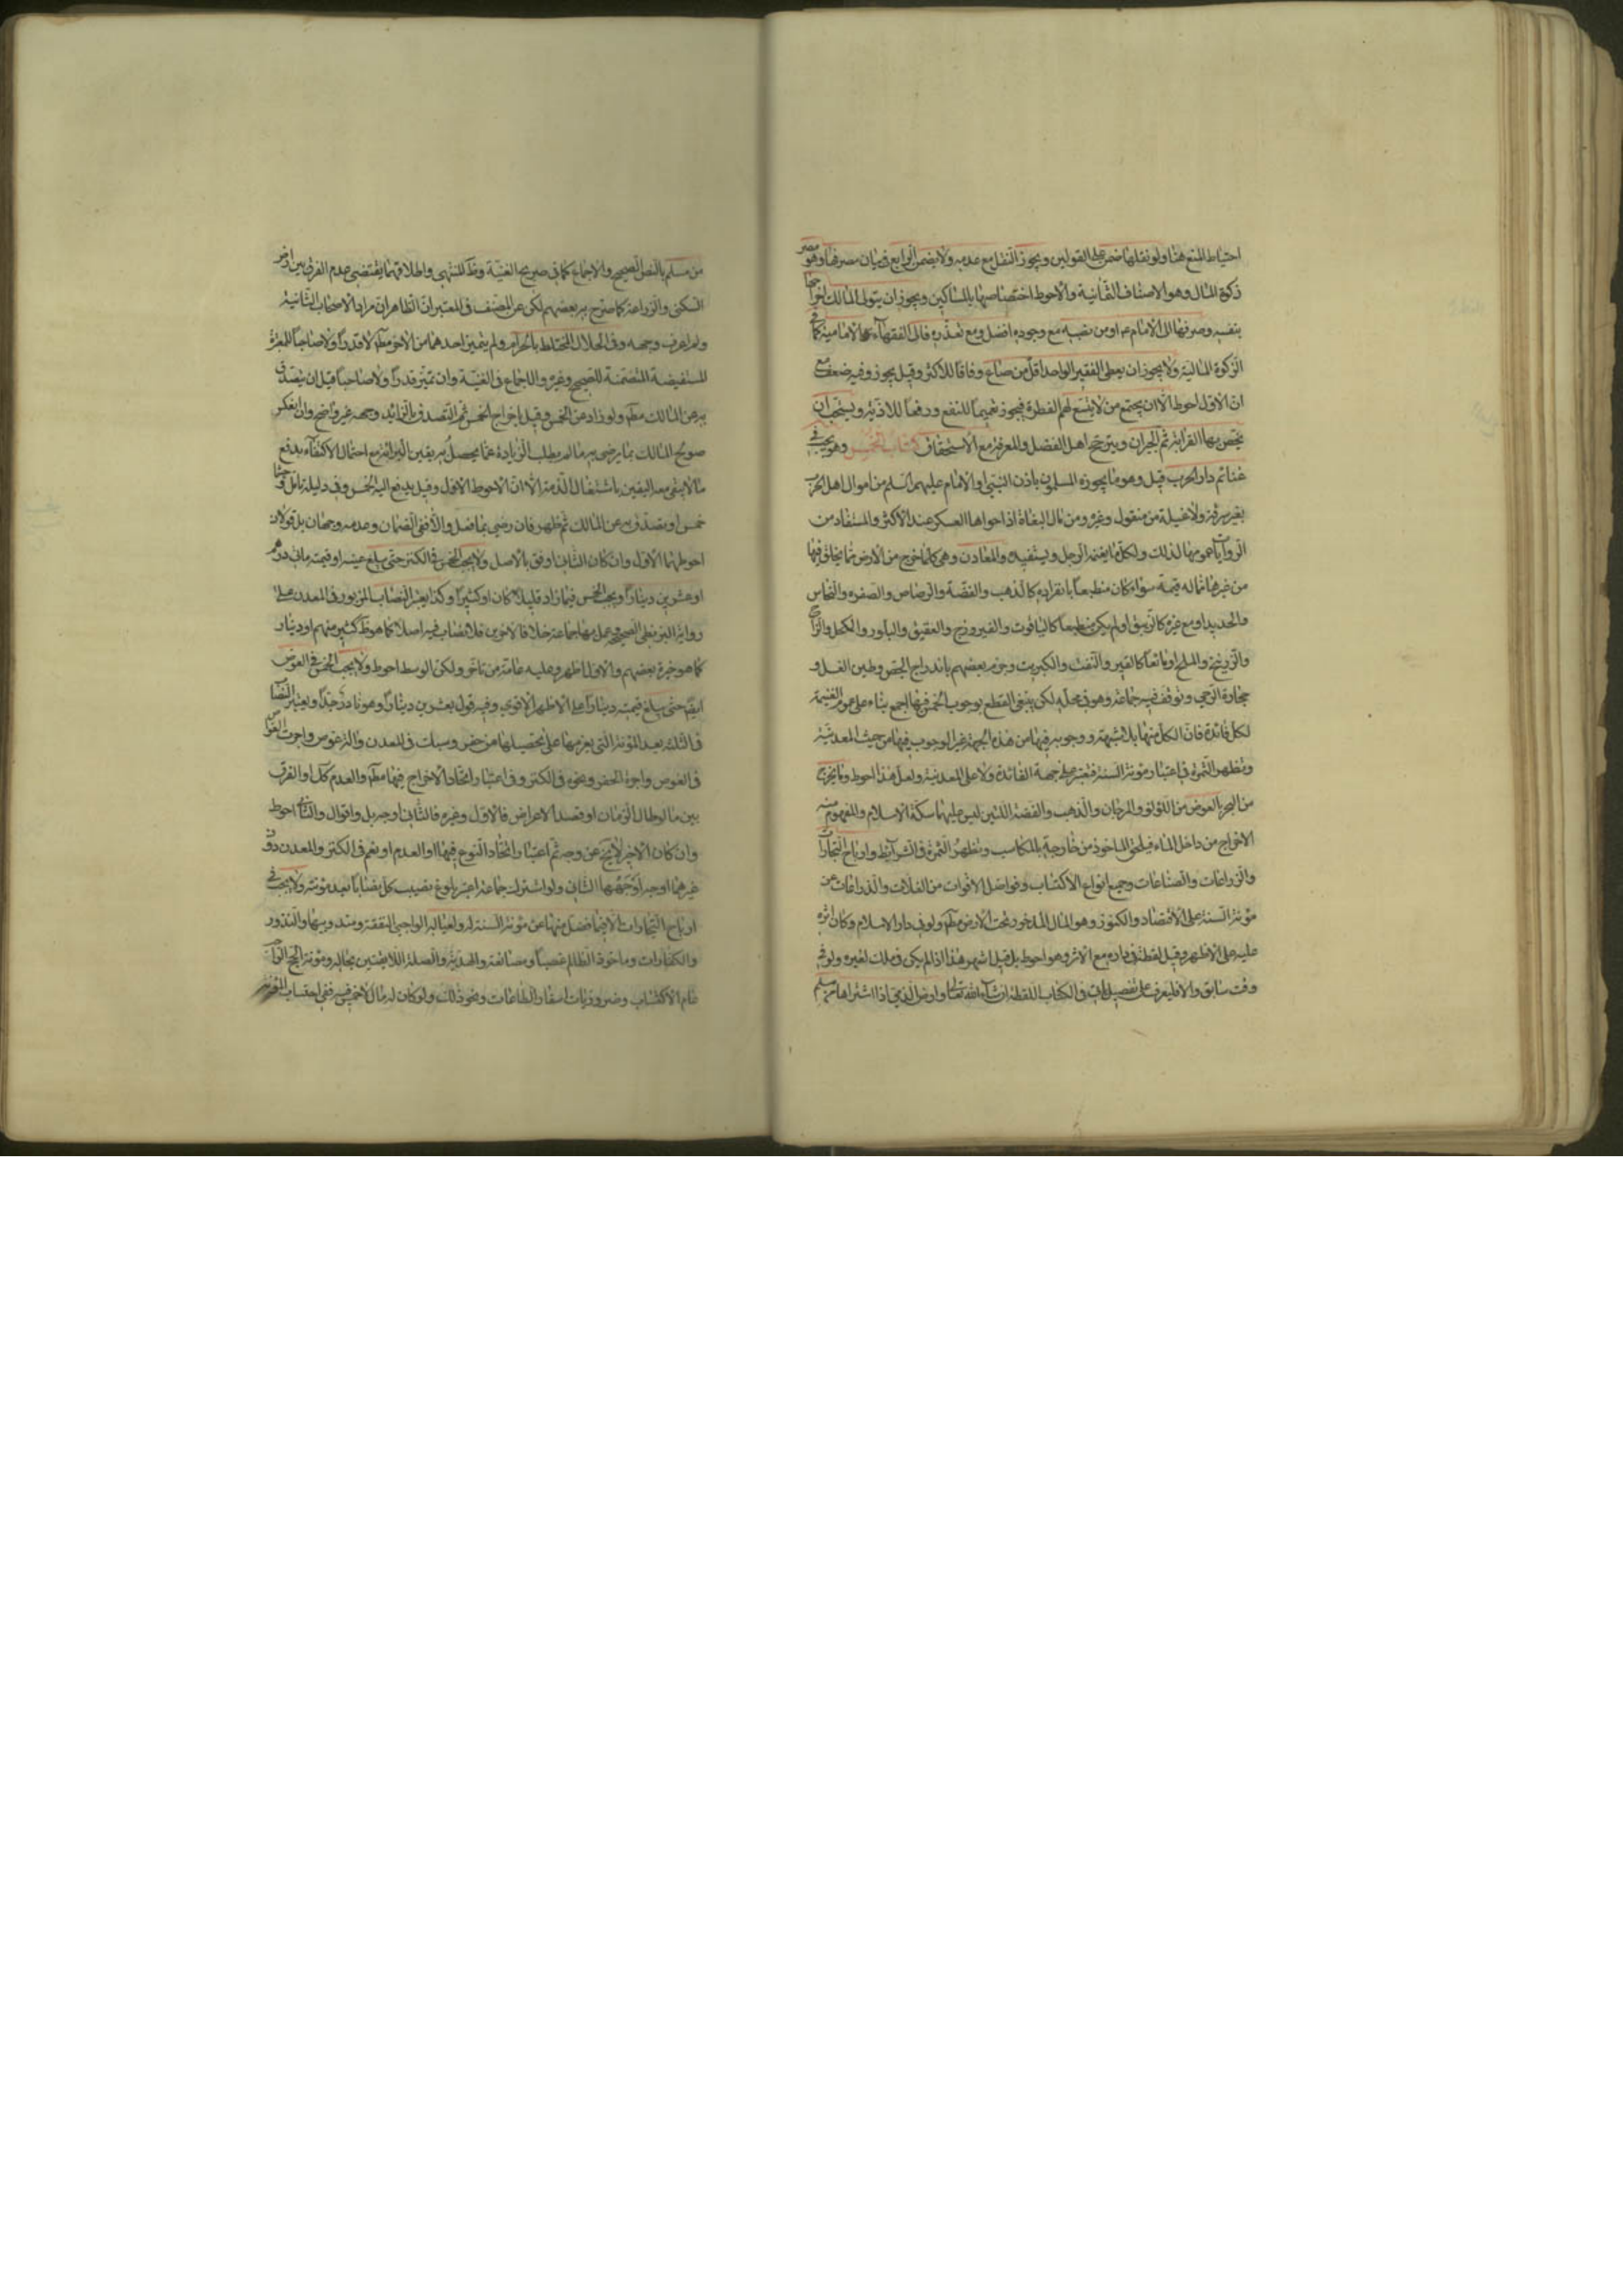 احتياط المنع هنا ولو نقلها ضمن على القولين ويجوز النقل مع عدمه ولا يضمن الرابع في بيان مصرفها وهو مصرف
زكوة المال وهو الاصناف الثمانية والاحوط اختصاصها بالمساكين ويجوز ان يتولى المالك اخراجها
بنفسه وصرفها الى الامام عم او من نصبه مع وجوده افضل ومع تعذره فالى الفقهاء الامامية كما في
الزكوة المالية ولا يجوز ان يعطى الفقير الواحد اقل من صاع وفاقا للاكثر وقيل يجوز وفيه ضعف مع
ان الاول احوط الا ان يجتمع من لا يتسع لهم الفطرة فيجوز تعميما للنفع ودفعا للاذية ويستحب ان
يختص بها القرابة ثم الجيران ويترجح اهل الفضل والمعرفة مع الاستحقاق كتاب الخمس وهو يجب في
غنائم دار الحرب قيل وهو ما يحوزه المسلمون باذن النبي او الامام عليهم السلم من اموال اهل الحرب
بغير سرقة ولا غيلة من منقول وغيره ومن مال البغاة اذا حواها العسكر عند الاكثر والمستفاد من
الروايات عمومها لذلك ولكل ما يغنمه الرجل ويستفيده والمعادن وهي كلما خرج من الارض مما يخلق فيها
من غيرها مما له قيمة سواء كان منطبعا بانفراده كالذهب والفضة والرصاص والصفر والنحاس
والحديد او مع غيره كالزيبق او لم يكن منطبعا كالياقوت والفيروزج والعقيق والبلور والكحل والزاج
والزرنيخ والملح او مائعا كالقير والنفث والكبريت وجزم بعضهم باندراج الجص وطين الغسل و
حجارة الرحى وتوقف فيه جماعة وهو في محله لكن ينبغي القطع بوجوب الخمس فيها اجمع بناء على عموم الغنيمة
لكل فائدة فان الكل منها بلا شبهة ووجوبه فيها من هذه الجهة غير الوجوب فيها من حيث المعدنية
وتظهر الثمرة في اعتبار مؤنة السنة فتعتبر على جهة الفائدة ولا على المعدنية ولعل هذا احوط وما يخرج
من البحر بالغوص من اللؤلؤ والمرجان والذهب والفضة اللتين ليس عليهما سكة الاسلام والمفهوم منه
الاخراج من داخل الماء فيلحق الماخوذ من خارجه بالمكاسب وتظهر الثمرة في الشرائط وارباح التجارات
والزراعات والصناعات وجميع انواع الاكتساب وفواضل الاقوات من الغلات والذراعات عن
مؤنة السنة على الاقتصاد والكنوز وهو المال المذخور تحت الارض مطم ولو في دار الاسلام وكان اثره
عليه على الاظهر وقيل لقطة في داره مع الاثر وهو احوط بل قيل اشهر هذا اذا لم يكن في ملك لغيره ولو في
وقت سابق والا فليعرف على تفصيل ياتي في الكتاب اللقطة ان شاء الله تعالى وارض الذمي اذا اشتراها من مسلم
من مسلم بالنص الصحيح والاجماع كما في صريح الغنية وظ المنتهى واطلاقهما يقتضي عدم الفرق بين ارض
السكنى والزراعة كما صرح به بعضهم لكن عن المصنف في المعتبر ان الظاهر ان مراد الاصحاب الثانية
ولم اعرف وجهه وفي الحلال المختلط بالحرام ولم يتميز احدهما من الاخر مطم لا قدرا ولا صاحبا للمعتبرة
المستفيضة المتضمنة للصحيح وغيره والاجماع في الغنية وان تميز قدرا ولا صاحبا قيل ان يتصدق
به عن المالك مطم ولو زاد عن الخمس وقيل باخراج الخمس ثم التصدق بالزائد ووجهه غير واضح وان انعكس
صولح المالك بما يرضى به ما لم يطلب الزيادة عما يحصل به يقين البرائة مع احتمال الاكتفاء بدفع
ما لا يبقى معه اليقين باشتغال الذمة الا ان الاحوط الاول وقيل يدفع اليه الخمس وفي دليله تامل
خمس او يصدق به عن المالك ثم ظهر فان رضي بما فعل والا ففي الضمان وعدمه وجهان بل قولان
احوطهما الاول وان كان الثاني اوفق بالاصل ولا يجب الخمس في الكنز حتى يبلغ عينه او قيمته مائتي درهم
او عشرين دينارا ويجب الخمس فيما زاد قليلا كان او كثيرا وكذا يعتبر النصاب المزبور في المعدن على
رواية البزنطي الصحيح وعمل بها جماعة خلافا لاخرين فلا نصاب فيه اصلا كما هو ظ كثير منهم او دينار
كما هو خيرة بعضهم والاول اظهر وعليه عامة من تاخر ولكن الوسط احوط ولا يجب الخمس في الغوص
ايضا حتى يبلغ قيمته دينارا على الاظهر الاقوى وفيه قول بعشرين دينارا وهو نادر جدا ويعتبر النصاب
في الثلثة بعد المؤنة التي يغرمها على تحصيلها من حفر وسبك في المعدن والة غوص واجرت الغواص
في الغوص واجرة الحفر ونحوه في الكنز وفي اعتبار اتحاد الاخراج فيها مطم والعدم كك او الفرق
بين ما لو طال الزمان او قصد الاعراض فالاول وغيره فالثاني اوجه بل واقوال والثاني احوط
وان كان الاخير لا يخ عن وجه ثم اعتبار اتحاد النوع فيها او العدم او نعم في الكنز والمعدن دون
غيرهما اوجه اوجهها الثاني ولو اشترك جماعة اعتبر بلوغ نصيب كل نصابا بعد مؤنته ولا يجب في
ارباح التجارات الا فيما فضل منها عن مؤنة السنة له ولعياله الواجبي النفقة ومندوبيها والنذور
والكفارات وماخوذ الظالم غصبا ومصانعة والهدية والصلة اللايقتين بحاله ومؤنة الحج الواجب
عام الاكتساب وضروريات اسفار الطاعات ونحو ذلك ولو كان له مال لا خمس فيه ففي احتساب المؤنة